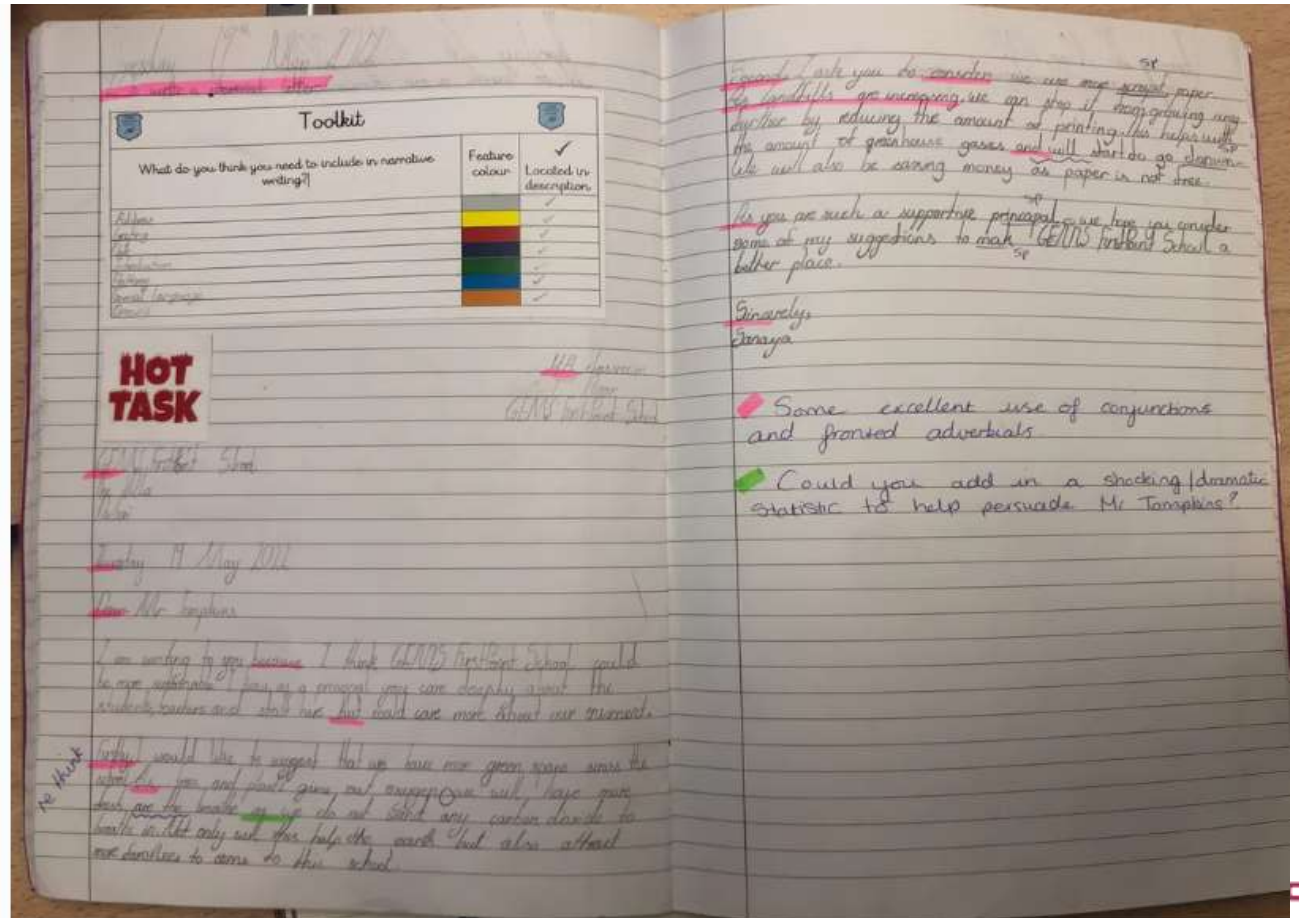 Tuesday 19th May 2022
write a formal letter
Toolkit
What do you think you need to include in narrative writing?
Feature colour
Located in description
Address
Formal language
HOT TASK
GEMS FirstPoint School
GEMS FirstPoint School
Tuesday 19 May 2022
Dear Mr Tompkins
I am writing to you because I think GEMS FirstPoint School could
be more I as a principal you care deeply about the
students, teachers and staff but could care more about our
re think
Firstly I would like to suggest that we have more green space across the
school. As trees and plants give out oxygen we will have more
fresh are the breathe as we do not want any carbon to
breath in. Not only will this help the earth but also attract
more families to come to this school.
sp
Second I ask you to consider we use more paper.
As landfills are increasing, we can stop it from growing any
further by reducing the amount of printing. This helps with
sp
the amount of greenhouse gasses and will start to go
We will also be saving money as paper is not free.
sp
As you are such a supportive principal, we hope you consider
some of my suggestions to mak GEMS FirstPoint School a
sp
better place.
Sincerely,
Sanaya
Some excellent use of conjunctions
and fronted adverbials.
Could you add in a shocking/dramatic
statistic to help persuade Mr Tompkins?